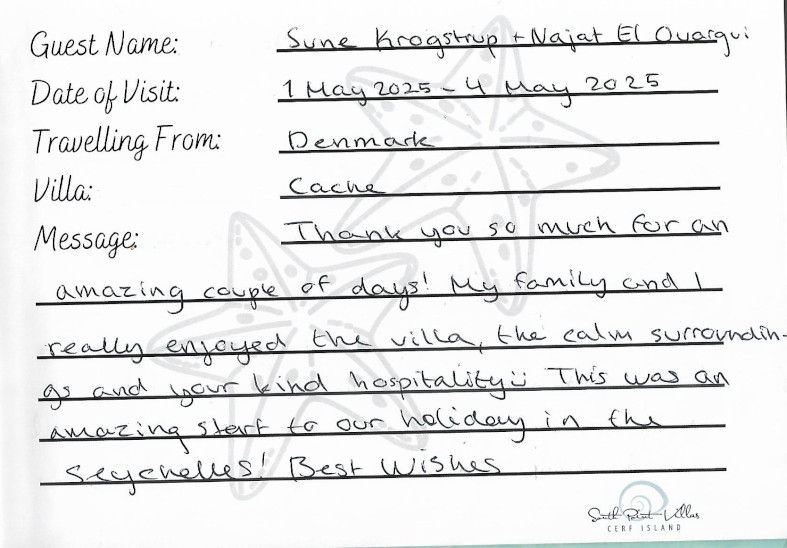 Guest Name: Sune Krogstrup + Najat El Ouargui
Date of Visit: 1 May 2025 - 4 May 2025
Travelling From: Denmark
Villa: Cache
Message: Thank you so much for an
amazing couple of days! My family and I
really enjoyed the villa, the calm surroundin-
gs and your kind hospitality :) This was an
amazing start to our holiday in the
Seychelles! Best Wishes
South Point Villas
CERF ISLAND